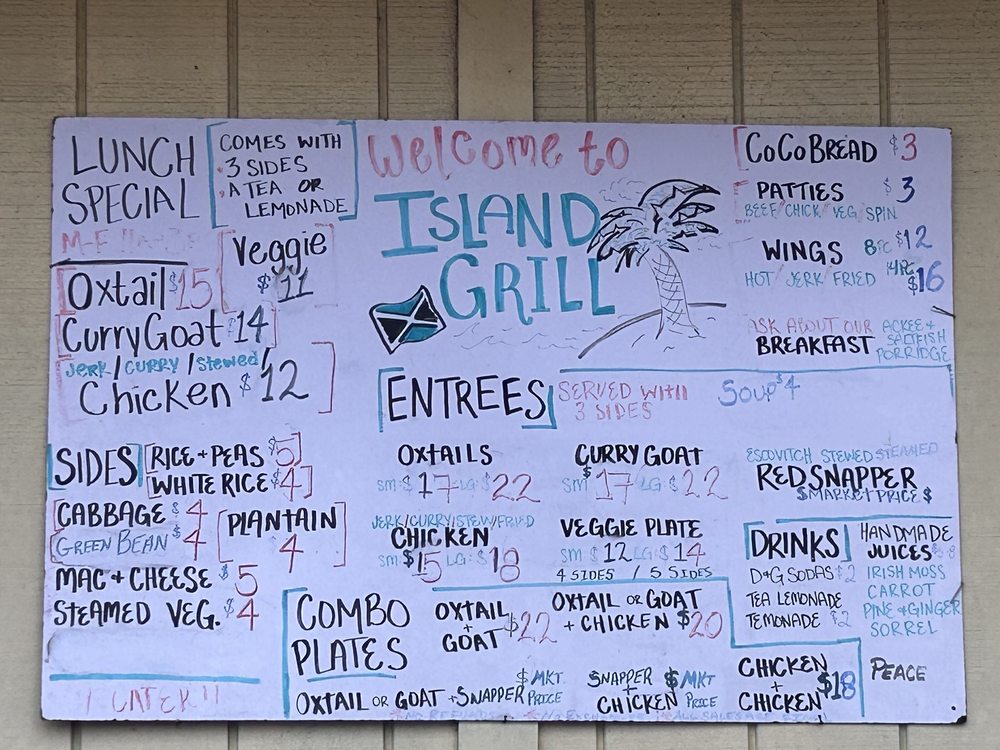 LUNCH
SPECIAL
COMES WITH
3 SIDES
A TEA OR
LEMONADE
M-F
Oxtail $15
Veggie
$11
Curry Goat $14
Jerk / Curry / Stewed
Chicken $12
SIDES
RICE + PEAS $5
WHITE RICE $4
CABBAGE $4
GREEN BEAN $4
PLANTAIN
4
MAC + CHEESE $5
STEAMED VEG. $4
Welcome to
ISLAND
GRILL
ENTREES
SERVED WITH
3 SIDES
SOUP $4
OXTAILS
SM $17 LG $22
CURRY GOAT
SM $17 LG $22
JERK/CURRY/STEW/FRIED
CHICKEN
SM $15 LG $18
VEGGIE PLATE
SM $12 LG $14
4 SIDES / 5 SIDES
ESCOVITCH STEWED STEAMED
RED SNAPPER
$MARKET PRICE $
COCO BREAD $3
PATTIES $3
BEEF/CHICK/VEG SPIN
WINGS 8PC $12
14PC $16
HOT / JERK / FRIED
ASK ABOUT OUR
BREAKFAST
ACKEE +
SALTFISH
PORRIDGE
DRINKS
D+G SODAS $2
TEA LEMONADE
TEMONADE $2
HANDMADE
JUICES
IRISH MOSS
CARROT
PINE + GINGER
SORREL
PEACE
COMBO
PLATES
OXTAIL
+
GOAT $22
OXTAIL OR GOAT
+ CHICKEN $20
OXTAIL OR GOAT + SNAPPER $ MKT PRICE
SNAPPER
+
CHICKEN $ MKT PRICE
CHICKEN
+
CHICKEN $18
NO REFUNDS